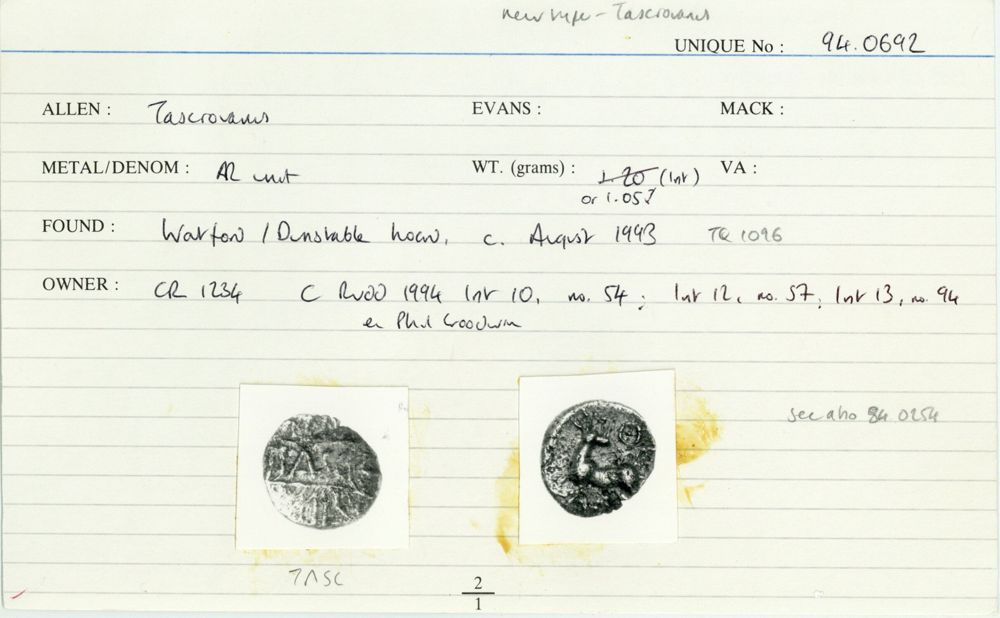 new type - Tasciovanus
UNIQUE No : 94.0692
ALLEN : Tasciovanus EVANS : MACK :
METAL/DENOM : AR unit WT. (grams) : 1.20 (lnt) VA :
or 1.05?
FOUND : Watford / Dunstable hoard, c. August 1993 TQ 1096
OWNER : CR 1234 C Rudd 1994 lnt 10, no. 54; lnt 12, no. 57; lnt 13, no. 94
ex Phil Goodwin
see also 94.0254
TASC
TASC
2
1